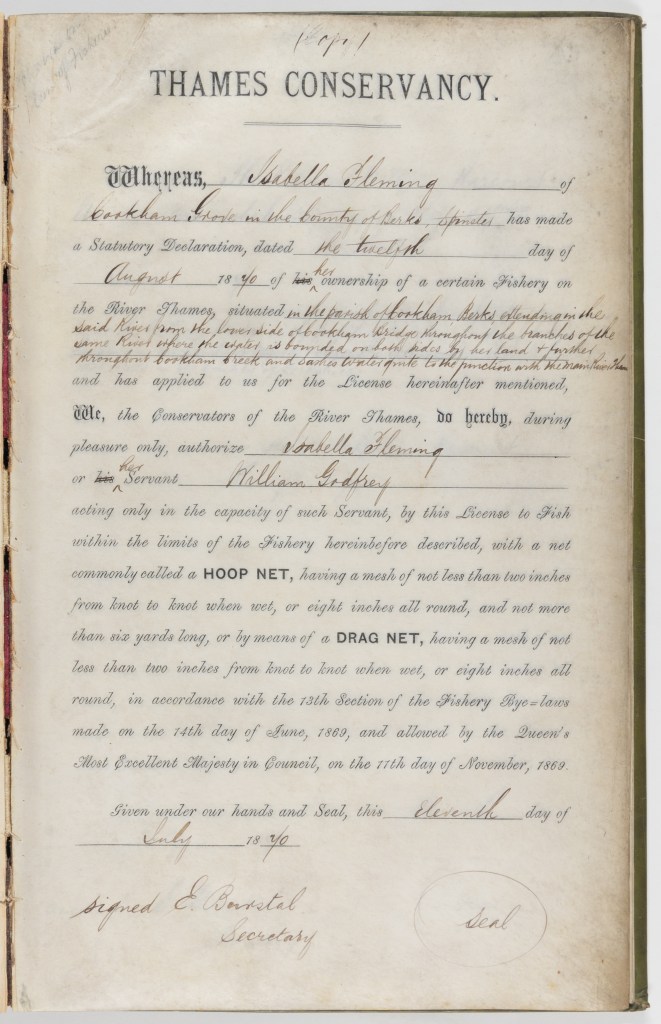 (Copy)
THAMES CONSERVANCY.
Whereas, Isabella Fleming of
Cookham Grove in the County of Berks, Spinster has made
a Statutory Declaration, dated the twelfth day of
August 1870 of his her ownership of a certain Fishery on
the River Thames, situated in the parish of Cookham Berks extending in the
said River from the lower side of Cookham Bridge throughout the branches of the
same River where the Water is bounded on both sides by her land & further
throughout Cookham Creek and Water quite to the junction with the main River Thames
and has applied to us for the License hereinafter mentioned,
We, the Conservators of the River Thames, do hereby, during
pleasure only, authorize Isabella Fleming
or his her Servant William Godfrey
acting only in the capacity of such Servant, by this License to Fish
within the limits of the Fishery hereinbefore described, with a net
commonly called a HOOP NET, having a mesh of not less than two inches
from knot to knot when wet, or eight inches all round, and not more
than six yards long, or by means of a DRAG NET, having a mesh of not
less than two inches from knot to knot when wet, or eight inches all
round, in accordance with the 13th Section of the Fishery Bye=laws
made on the 14th day of June, 1869, and allowed by the Queen's
Most Excellent Majesty in Council, on the 11th day of November, 1869.
Given under our hands and Seal, this eleventh day of
July 1870
signed E. Burstal
Secretary
Seal